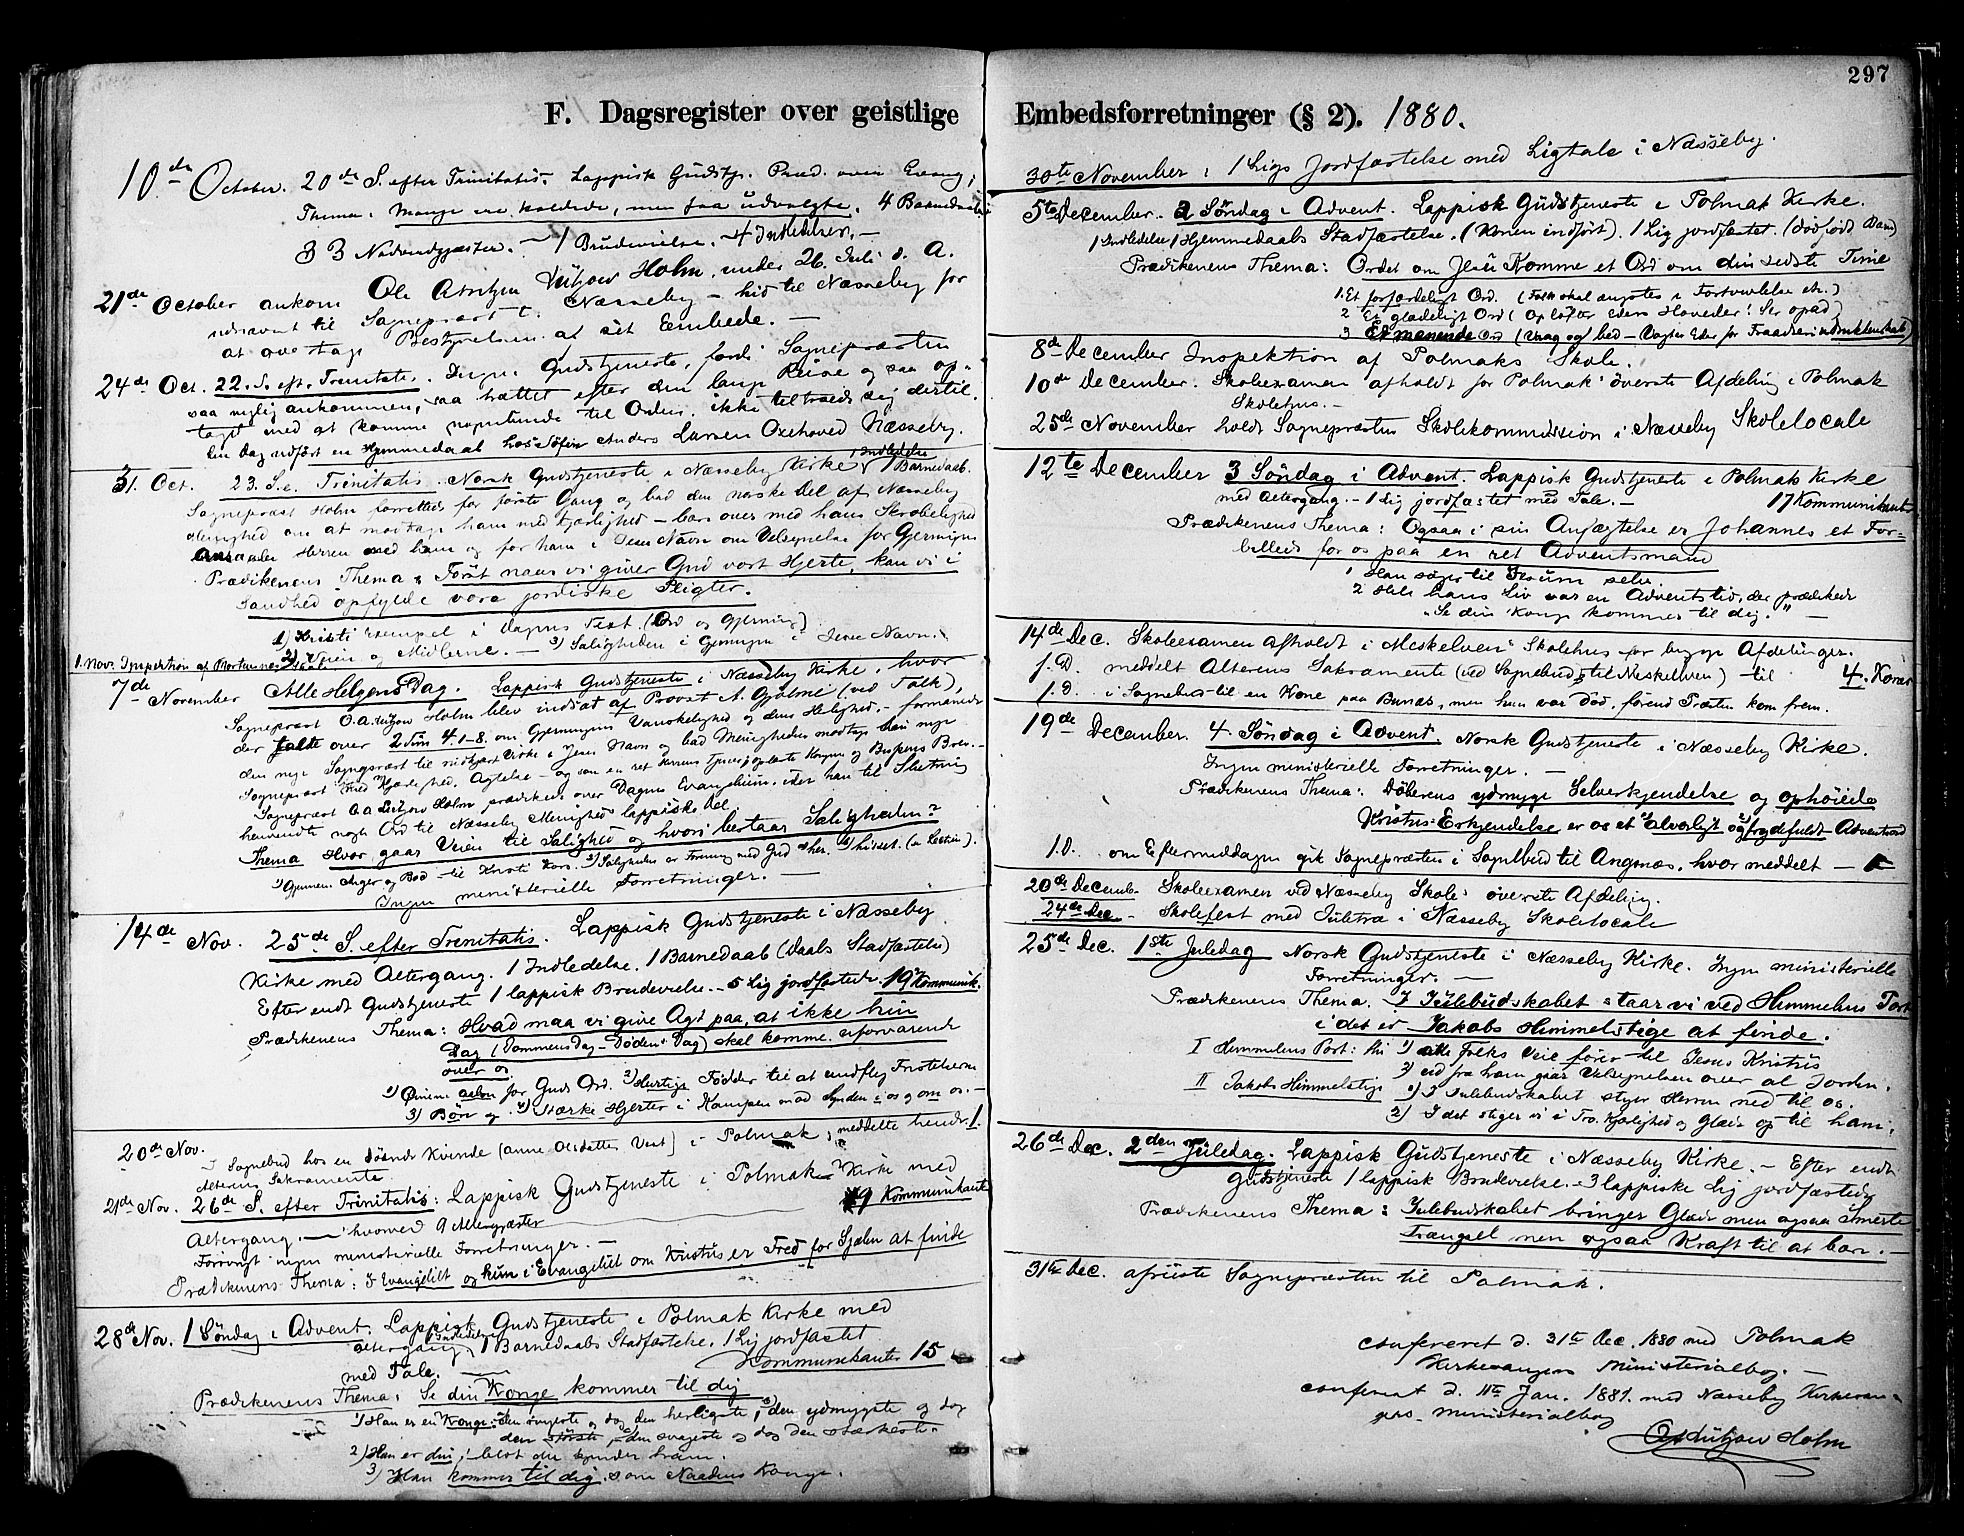 297
F. Dagsregister over geistlige
10de October. 20de S. efter Trinitatis. Lappisk Gudstj. Præd. over Evang.,
Thema: Mange ere kaldede, men faa udvalgte. 4 Barnedaab
33 Nadverdgjæster. — 1 Brudevielse. — 4 Indledelser. —
21de October ankom Ole Lützow Holm, under 26. Juli d. A.
udnævnt til Sognepræst i Næsseby — hid til Næsseby for
at overtage Bestyrelsen af sit Embede. —
24de Oct. 22. S. eft. Trinitatis. Ingen Gudstjeneste, fordi Sognepræsten
saa nylig ankommen, saa trættet efter den lange Reise og saa op-
taget med at komme nogenlunde til Orden, ikke tiltroede sig dertil.
Den Dag udført en Hjemmedaab hos Anders Larsen Oxehoved Næsseby.
31. Oct. 23. S. e. Trinitatis. Norsk Gudstjeneste i Næsseby Kirke 1 Indledelse 1 Barnedaab.
Sognepræst Holm forrettede for første Gang og bad den norske Del af Næsseby
Menighed om at modtage ham med Kjærlighed — bære over med hans Skrøbelighed
Herren med ham og for ham i Jesu Navn om Velsignelse for Gjerningen
Prædikenens Thema: Først naar vi giver Gud vort Hjerte, kan vi i
Sandhed opfylde vore jordiske Pligter.
1) Kristi Exempel i Dagens Text. (Ord og Gjerning)
2) Veien og Midlerne. — 3) Saligheden i Gjerningen i Jesu Navn.
1. Nov. Inspektion af
7de November Alle Helgens Dag. Lappisk Gudstjeneste i Næsseby Kirke, hvor
Sognepræst O. A. Lützow Holm blev indsat af Provst A. Gjølme (ved Tolk),
der talte over 2 Tim 4. 1-8. om Gjerningens Vanskelighed og dens Helighed, — formanede
den nye Sognepræst til Virke i Jesu Navn og bad Menigheden modtage sin nye
Sognepræst med Kjærlighed, Agtelse — og som en ret Herrens Tjener, oplæste Kongens og Bispens Brev. —
Sognepræst O. A. Lützow Holm prædikede over Dagens Evangelium, efter han til Slutning
henvendte nogle Ord til Næsseby Menigheds lappiske Del.
Thema Hvor gaar Veien til Salighed og hvori bestaar Saligheden?
1) Gjennem Anger og Bod til Kristi Kors. 2) Saligheden er Forening med Gud
Ingen ministerielle Forretninger. —
14de Nov. 25de S. efter Trinitatis. Lappisk Gudstjeneste i Næsseby
Kirke med Altergang. 1 Indledelse. 1 Barnedaab (Daabs Stadfæstelse)
Efter endt Gudstjeneste 1 lappisk Brudevielse. — 5 Lig jordfæstede. 19 Kommunik.
Prædikenens Thema: Hvad maa vi give Agt paa, at ikke hin
Dag (Dommens Dag — Dødens Dag) skal komme uforvarende
over os.
1) Øinene aabne for Guds Ord. 2) Hurtige Fødder til at undfly Fristelserne
3) Bøn og 4) Stærke Hjerter i Kampen mod Synden i os og om os. —
20de Nov. I Sognebud hos en døende Kvinde (Anne Olsdatter Vest) i Polmak, meddelte hende 1.
Alterens Sakramente
21de Nov. 26de S. efter Trinitatis: Lappisk Gudstjeneste i Polmak Kirke med
Altergang. — hvorved 9 Altergjæster 9 Kommunikanter
Forøvrigt ingen ministerielle Forretninger. —
Prædikenens Thema: I Evangeliet og kun i Evangeliet om Kristus er Fred for Sjælen at finde
28de Nov. 1 Søndag i Advent. Lappisk Gudstjeneste i Polmak Kirke med
Altergang, 1 Indledelse 1 Barnedaabs Stadfæstelse. 1 Lig jordfæstet
med Tale. — Kommunikanter 15
Prædikenens Thema: Se din Konge kommer til dig
1) Han er en Konge: den ringeste og dog den herligste, den ydmygste og dog
den største, den svageste og dog den stærkeste.
2) Han er din, blot du kjender ham.
3) Han kommer til dig. som Naadens Konge.
Embedsforretninger (§ 2). 1880.
30te November: 1 Ligs Jordfæstelse med Ligtale i Næsseby.
5te December. 2 Søndag i Advent. Lappisk Gudstjeneste i Polmak Kirke.
1 Indledelse 1 Hjemmedaabs Stadfæstelse. (Konen indført). 1 Lig jordfæstet. (dødfødt Barn)
Prædikenens Thema: Ordet om Jesu Komme et Ord om din sidste Time
1. Et forfærdeligt Ord. (Folk skal ængstes i Fortvivlelse etc.)
2 Et glædeligt Ord (Opløfter Eders Hoveder! Ser opad)
3 Et manende Ord (Vaag og bed — Vogter Eder for Fraadseri
8de December Inspektion af Polmaks Skole.
10de December. Skoleexamen afholdt for Polmak øverste Afdeling i Polmak
Skolehus. —
25de November holdt Sognepræsten Skolekommission i Næsseby Skolelocale
12te December 3 Søndag i Advent. Lappisk Gudstjeneste i Polmak Kirke
med Altergang. — 1 Lig jordfæstet med Tale. — 17 Kommunikanter
Prædikenens Thema: Ogsaa i sin Anfægtelse er Johannes et For-
billede for os paa en ret Adventsmand
1 Han søger til Jesum selv.
2 Hele hans Liv var en Adventstid, der prædikede
"Se din Konge kommer til dig." —
14de Dec. Skoleexamen afholdt i Meskelven Skolehus for begge Afdelinger.
f. D. meddelt Alterens Sakramente (ved Sognebud til Meskelven) til 4. Koner
f. D. i Sognebud til en Kone paa Bunæs, men hun var død, førend Præsten kom frem.
19de December. 4 Søndag i Advent. Norsk Gudstjeneste i Næsseby Kirke.
Ingen ministerielle Forretninger. —
Prædikenens Thema: Døberens ydmyge Selverkjendelse og ophøiede
Kristus-Erkjendelse er os et alvorligt og frydefuldt Adventsord
f. D. om Eftermiddagen gik Sognepræsten i Sognebud til Angsnæs, hvor meddelt — 1
20de Decemb. Skoleexamen ved Næsseby Skoles øverste Afdeling.
24de Dec. — Skolefest med Juletræ i Næsseby Skolelocale
25de Dec. 1ste Juledag Norsk Gudstjeneste i Næsseby Kirke. Ingen ministerielle
Forretninger. —
Prædikenens Thema. I Julebudskabet staar vi ved Himmelens Port
i det er Jakobs Himmelstige at finde.
I Himmelens Port: thi 1) alle Folks Veie fører til Jesus Kristus
2) ud fra ham gaar Velsignelsen over al Jorden.
II Jakobs Himmelstige 1) I Julebudskabet stiger Herren ned til os.
2) I det stiger vi i Tro, Kjærlighed og Glæde op til ham.
26de Dec. 2den Juledag. Lappisk Gudstjeneste i Næsseby Kirke. — Efter endt
Gudstjeneste 1 lappisk Brudevielse. — 3 lappiske Lig jordfæstede
Prædikenens Thema: Julebudskabet bringer Glæde men ogsaa Smerte
Trængsel men ogsaa Kraft til at bære. —
31te Dec. afreiste Sognepræsten til Polmak.
Confereret d. 31te Dec. 1880 med Polmak
Kirkesangers Ministerialbog. —
Conferert d. 11te Jan. 1881. med Næsseby Kirkesan-
gers Ministerialbog
O A Lützow Holm